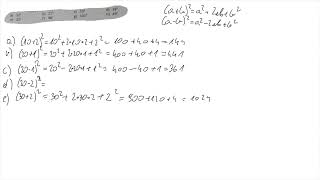 (a+b)²=a²+2ab+b²
(a-b)²=a²-2ab+b²
a) (10+2)²=10²+2·10·2+2²= 100+40+4=144
b) (20+1)²=20²+2·20·1+1²= 400+40+1=441
c) (20-1)²=20²-2·20·1+1²= 400-40+1=361
d) (30-2)²=
e) (30+2)²=30²+2·30·2+2²= 900+120+4=1024